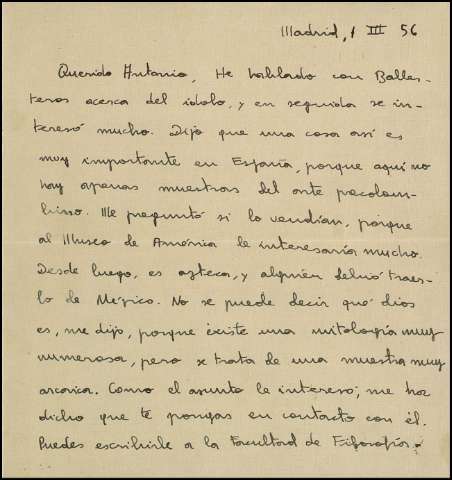 Madrid, 1 III 56
Querido Antonio, He hablado con Balles-
teros acerca del ídolo, y en seguida se in-
teresó mucho. Dijo que una cosa así es
muy importante en España, porque aquí no
hay apenas muestras del arte precolom-
bino. Me preguntó si lo vendían, porque
al Museo de América le interesaría mucho.
Desde luego, es azteca, y alguien debió traer-
lo de Méjico. No se puede decir qué dios
es, me dijo, porque existe una mitología muy
numerosa, pero se trata de una muestra muy
arcaica. Como el asunto le interesó, me ha
dicho que te pongas en contacto con él.
Puedes escribirle a la Facultad de Filosofía.